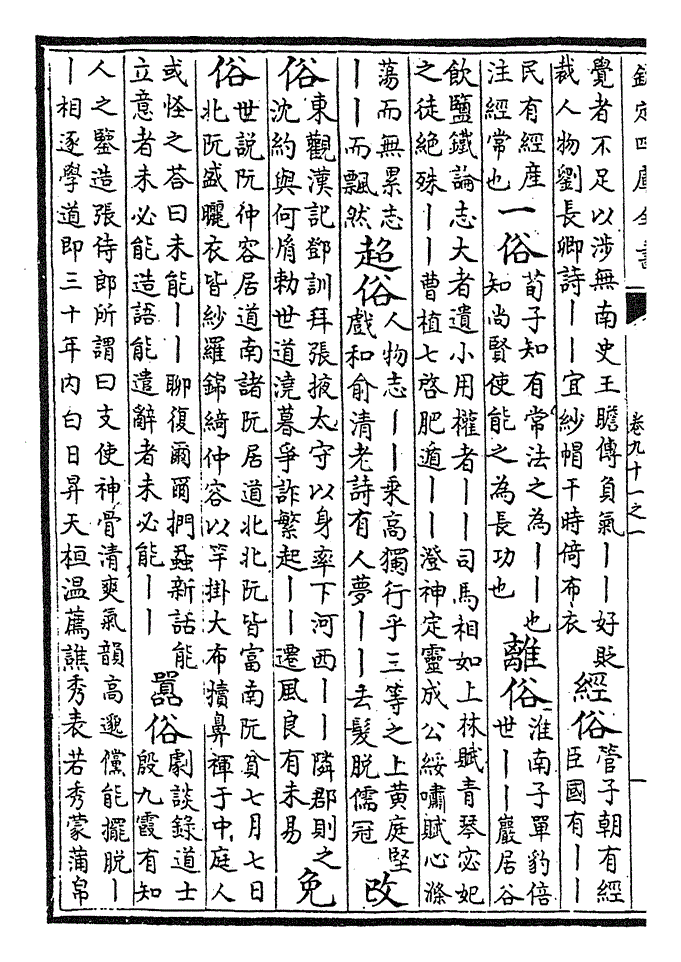 欽定四庫全書 卷九十一之一
覺者不足以涉無南史王瞻傳負氣丨丨好貶
裁人物劉長卿詩丨丨宜紗帽干時倚布衣
經俗
管子朝有經
臣國有丨丨
民有經產
注經常也
一俗
荀子知有常法之為丨丨也
知尚賢使能之為長功也
離俗
淮南子單豹倍
世丨丨巖居谷
飲鹽鐵論志大者遺小用權者丨丨司馬相如上林賦青琴宓妃
之徒絶殊丨丨曹植七啓肥遁丨丨澄神定靈成公綏嘯賦心滌
蕩而無累志
丨丨而飄然
超俗
人物志丨丨乘高獨行乎三等之上黄庭堅
戲和俞清老詩有人夢丨丨去髮脱儒冠
改
俗
東觀漢記鄧訓拜張掖太守以身率下河西丨丨隣郡則之
沈約與何胤勅世道澆暮爭詐繁起丨丨遷風良有未易
免
俗
世説阮仲容居道南諸阮居道北北阮皆富南阮貧七月七日
北阮盛曬衣皆紗羅錦綺仲容以竿掛大布犢鼻褌于中庭人
或怪之荅曰未能丨丨聊復爾爾捫蝨新話能
立意者未必能造語能遣辭者未必能丨丨
囂俗
劇談錄道士
殷九霞有知
人之鑒造張侍郎所謂曰支使神骨清爽氣韻高邈儻能擺脱丨
丨相逐學道即三十年内白日昇天桓温薦譙秀表若秀蒙蒲帛